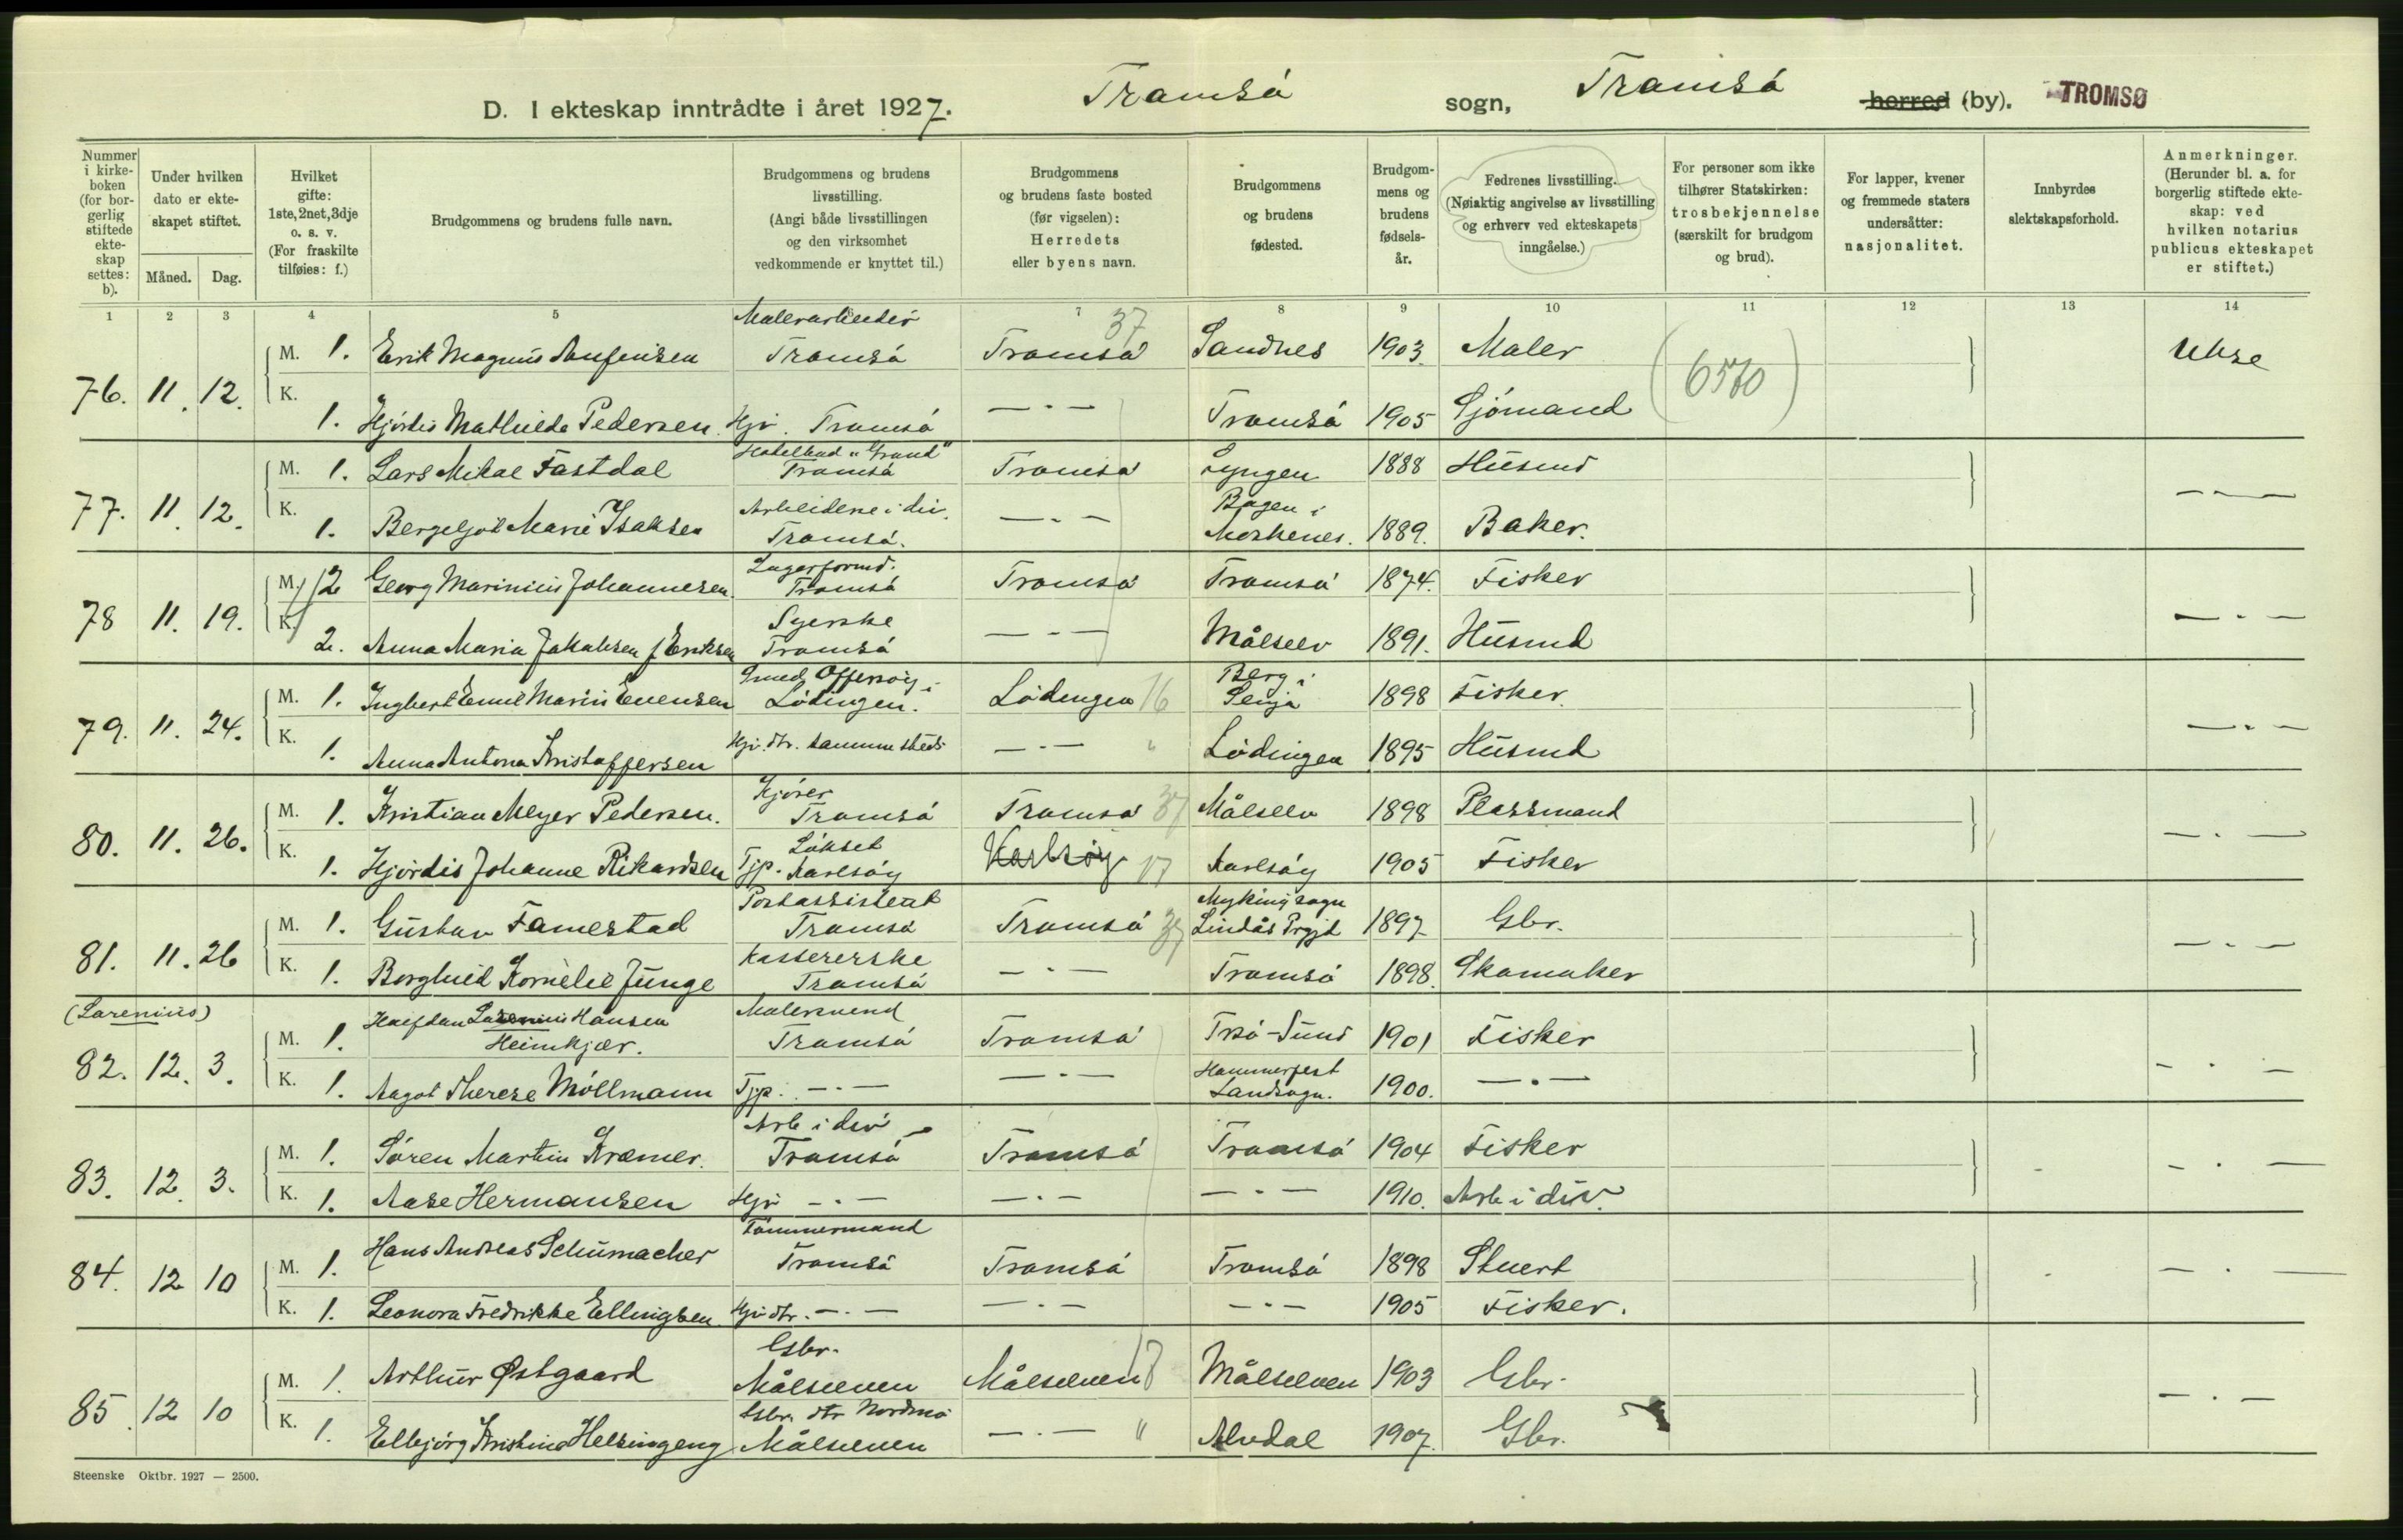 D. I ekteskap inntrådte i året 1927. Tromsö sogn, Tromsö herred (by). TROMSØ
Nummer i kirkeboken (for borgerlig stiftede ekteskap settes: b).
Under hvilken dato er ekteskapet stiftet.
Måned. Dag.
Hvilket gifte: 1ste, 2net, 3dje o. s. v. (For fraskilte tilføies: f.)
Brudgommens og brudens fulle navn.
Brudgommens og brudens livsstilling. (Angi både livsstillingen og den virksomhet vedkommende er knyttet til.)
Brudgommens og brudens faste bosted (før vigselen): Herredets eller byens navn.
Brudgommens og brudens fødested.
Brudgommens og brudens fødselsår.
Fedrenes livsstilling. (Nøiaktig angivelse av livsstilling og erhverv ved ekteskapets inngåelse.)
For personer som ikke tilhører Statskirken: trosbekjennelse (særskilt for brudgom og brud).
For lapper, kvener og fremmede staters undersåtter: nasjonalitet.
Innbyrdes slektskapsforhold.
Anmerkninger. (Herunder bl. a. for borgerlig stiftede ekteskap: ved hvilken notarius publicus ekteskapet er stiftet.)
1 2 3 4 5 7 8 9 10 11 12 13 14
Malerarbeider 37
76. 11. 12. M. 1. Erik Magnus Tromsö Tromsö Sandnes 1903. Maler (6570)
K. 1. Hjördis Mathilde Pedersen. Hjv. Tromsö — " — Tromsö 1905 Sjömand
Hotelbud "Grand"
77. 11. 12. M. 1. Lars Mikal Fastdal Tromsö Tromsö Lyngen 1888 Husmd — " —
Arbeiderske i div. Bogen i
K. 1. Bergljot Marie Isaksen Tromsö. — " — 1889. Baker.
Lagerformd.
78 11. 19. M. 2 Georg Marinius Johannesen. Tromsö Tromsö Tromsö 1874. Fisker — " —
Syerske
K. 2. Anna Maria Jakobsen f. Eriksen Tromsö — " — Målselv 1891. Husmd
Smed, Offersøy i Berg i
79. 11. 24. M. 1. Ingbert Emil Marin Evensen Lödingen. Lödingen 16 Senja 1898 Fisker. — " —
K. 1. Anna Antona Kristoffersen Hjv. dtr. sammesteds — " — " Lödingen 1895 Husmd
Kjörer
80. 11. 26. M. 1. Kristian Meyer Pedersen. Tromsö Tromsö 37 Målselv 1898 Plassmand — " —
Lökset
K. 1. Hjördis Johanne Rikardsen Tjp. Karlsöy Karlsöy 17 Karlsöy 1905 Fisker
Postassistent Myking sogn
81. 11. 26 M. 1. Gustav Famestad Tromsö Tromsö 37 Lindås Prgjd 1897 Gbr. — " —
Kassererske
K. 1. Borghild Kornelie Junge Tromsö — " — Tromsö 1898. Skomaker
(Larenius) Halfdan Larenius Hansen Malersvend
82. 12. 3. M. 1. Heimkjær. Tromsö Tromsö Tsö-Sund 1901 Fisker — " —
Hammerfest
K. 1. Aagot Therese Möllmann Tjp. — " — — " — Landsogn. 1900. — " —
Arb i div
83. 12. 3. M. 1. Sören Martin Kræmer. Tromsö Tromsö Tromsö 1904 Fisker — " —
K. 1. Aase Hermansen Hjv — " — — " — — " — 1910. Arb i div.
Tömmermand
84. 12 10 M. 1. Hans Andreas Schumacher Tromsö Tromsö Tromsö 1898 Stuert — " —
K. 1. Leonora Fredrikke Ellingsen Hjv dtr. — " — — " — — " — 1905 Fisker.
Gbr.
85. 12 10 M. 1. Arthur Østgaard Målselven Målselven 18 Målselven 1903 Gbr. — " —
Gbr. dtr Nordmo
K. 1. Ellbjörg Kristine Helsingeng Målselven — " — " Alvdal 1907. Gbr.
Steenske Oktbr. 1927 — 2500.